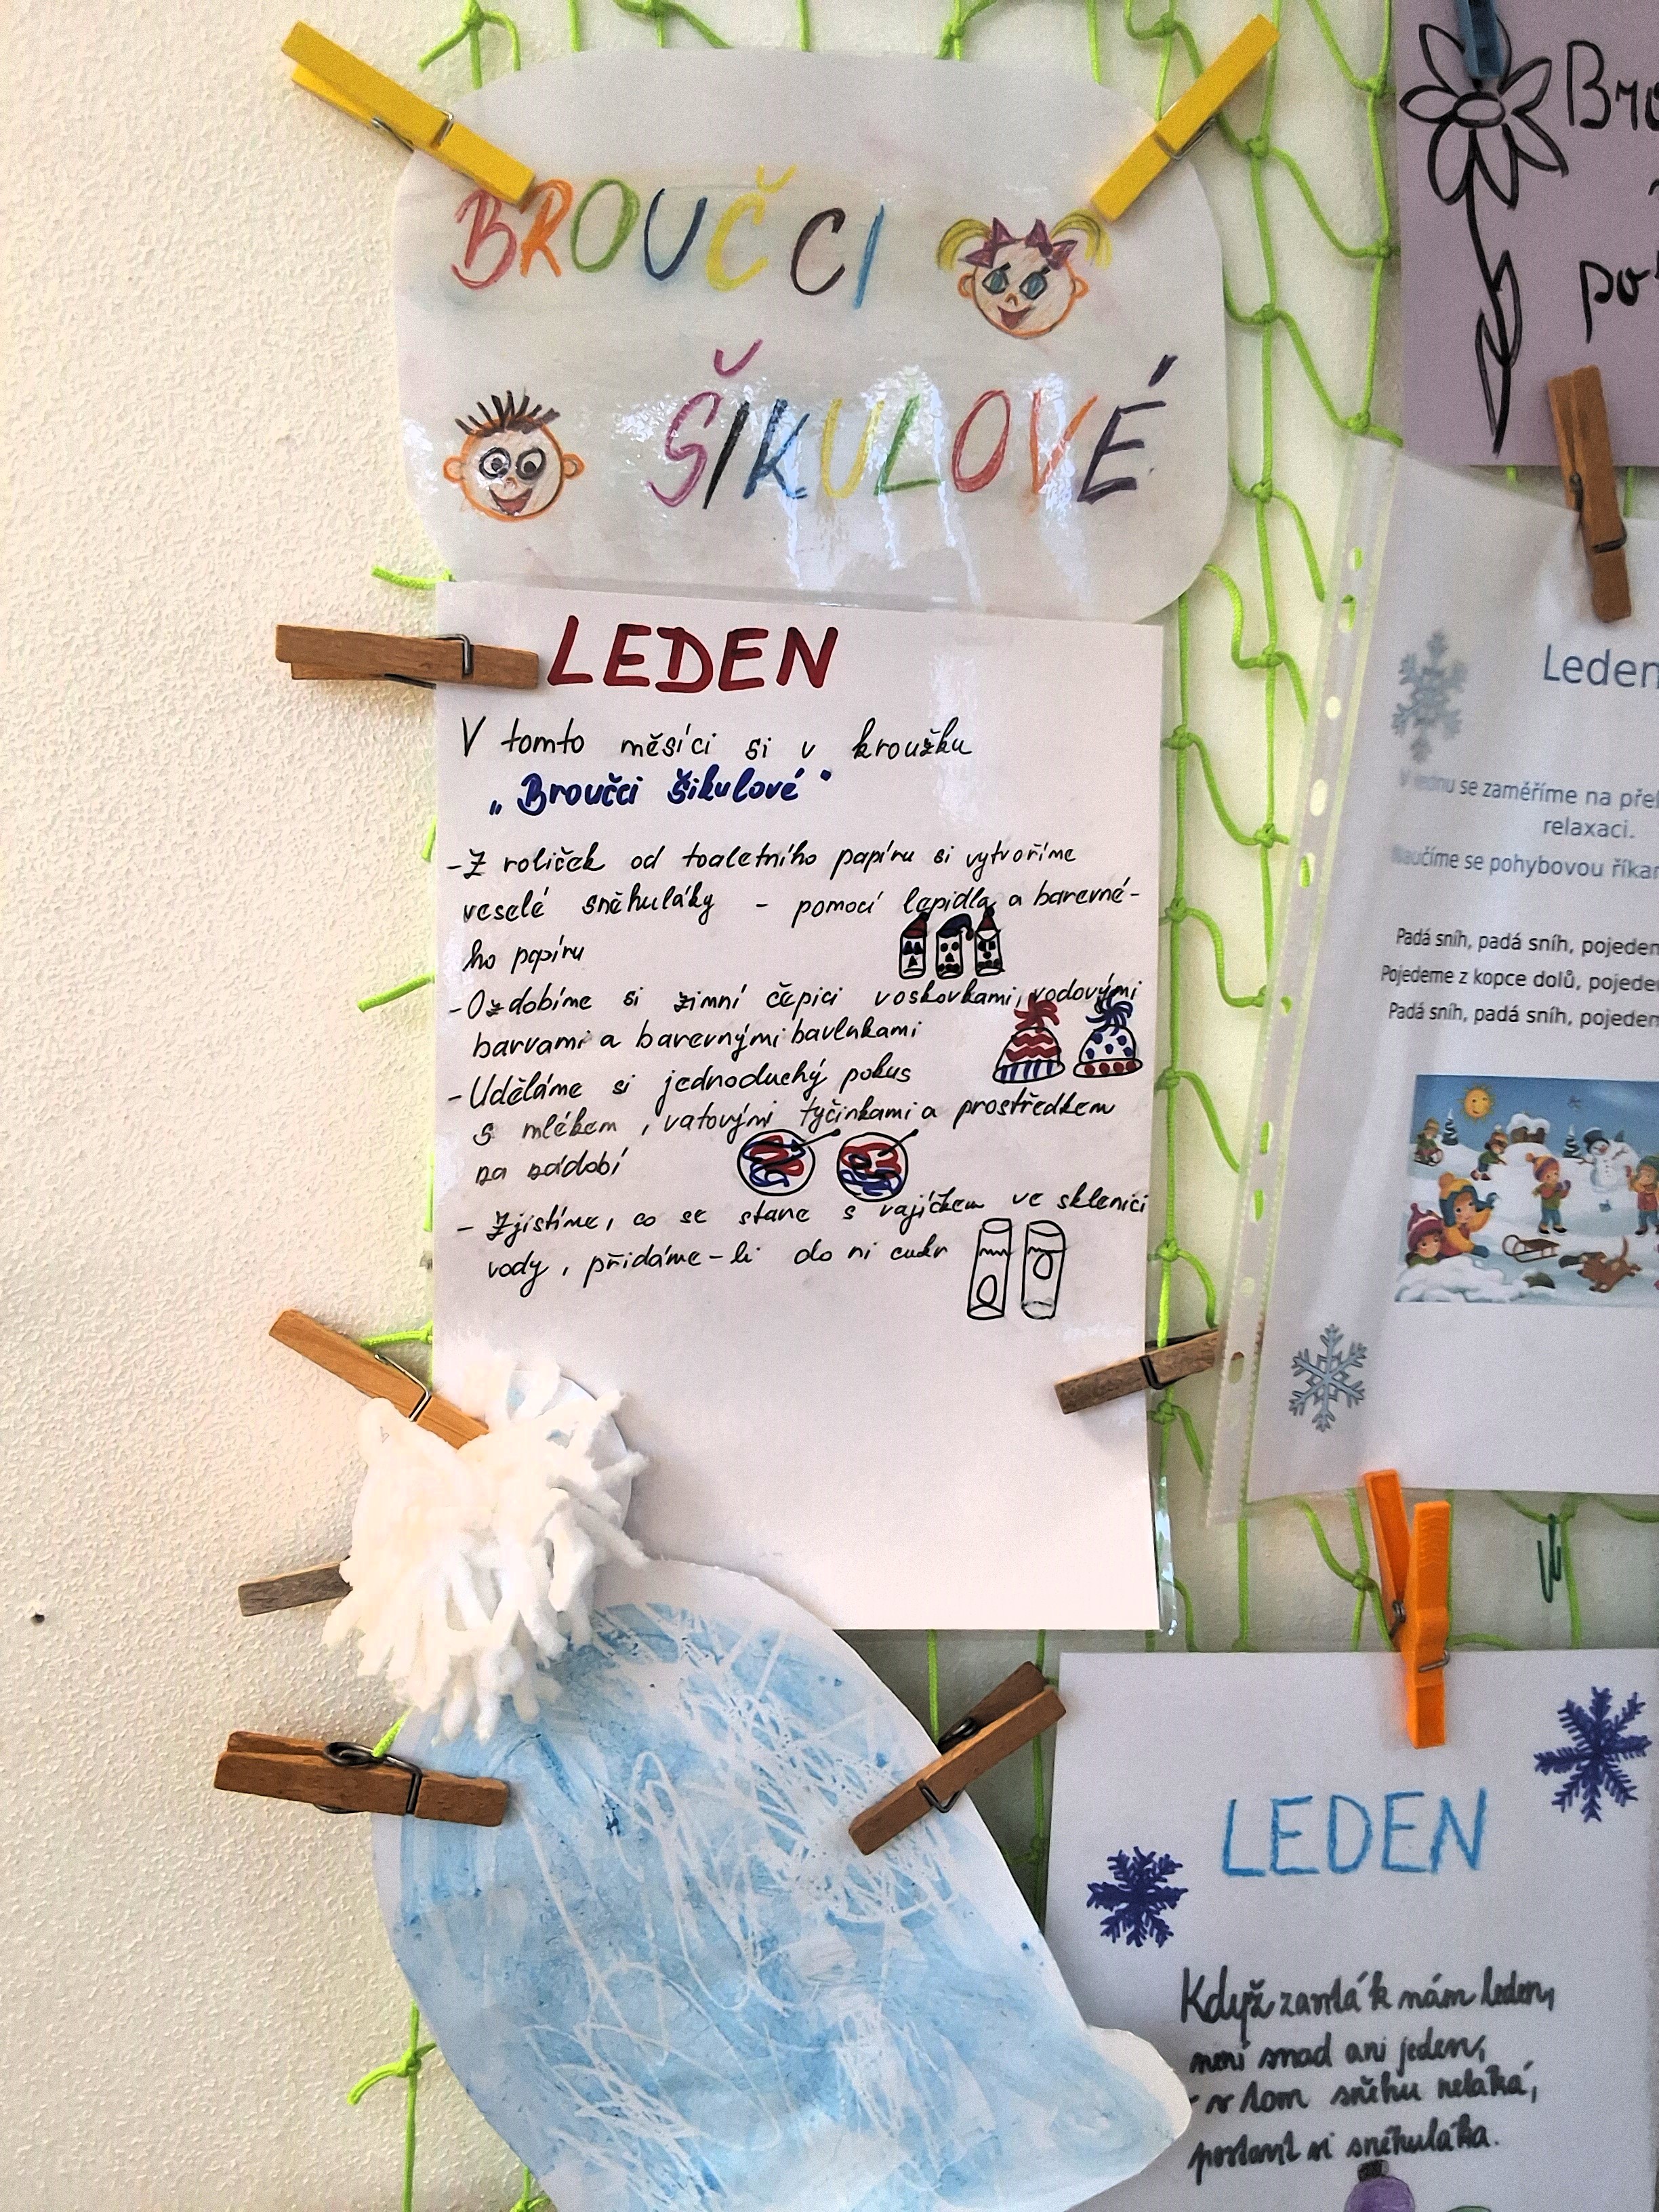 BROUČCI
ŠIKULOVÉ
LEDEN
V tomto měsíci si v kroužku
„Broučci Šikulové"
-Z roliček od toaletního papíru si vytvoříme
veselé sněhuláky - pomocí lepidla a barevné-
ho papíru
-Ozdobíme si zimní čepici voskovkami, vodovými
barvami a barevnými bavlnkami
-Uděláme si jednoduchý pokus
s mlékem, vatovými tyčinkami a prostředkem
na nádobí
- Zjistíme, co se stane s vajíčkem ve sklenici
vody, přidáme-li do ní cukr
Leden
V lednu se zaměříme na
relaxaci.
Naučíme se pohybovou
Padá sníh, padá sníh,
Pojedeme z kopce dolů,
Padá sníh, padá sníh,
LEDEN
Když zavítá k nám leden,
není snad ani jeden,
v tom sněhu neláká,
postavit si sněhuláka.